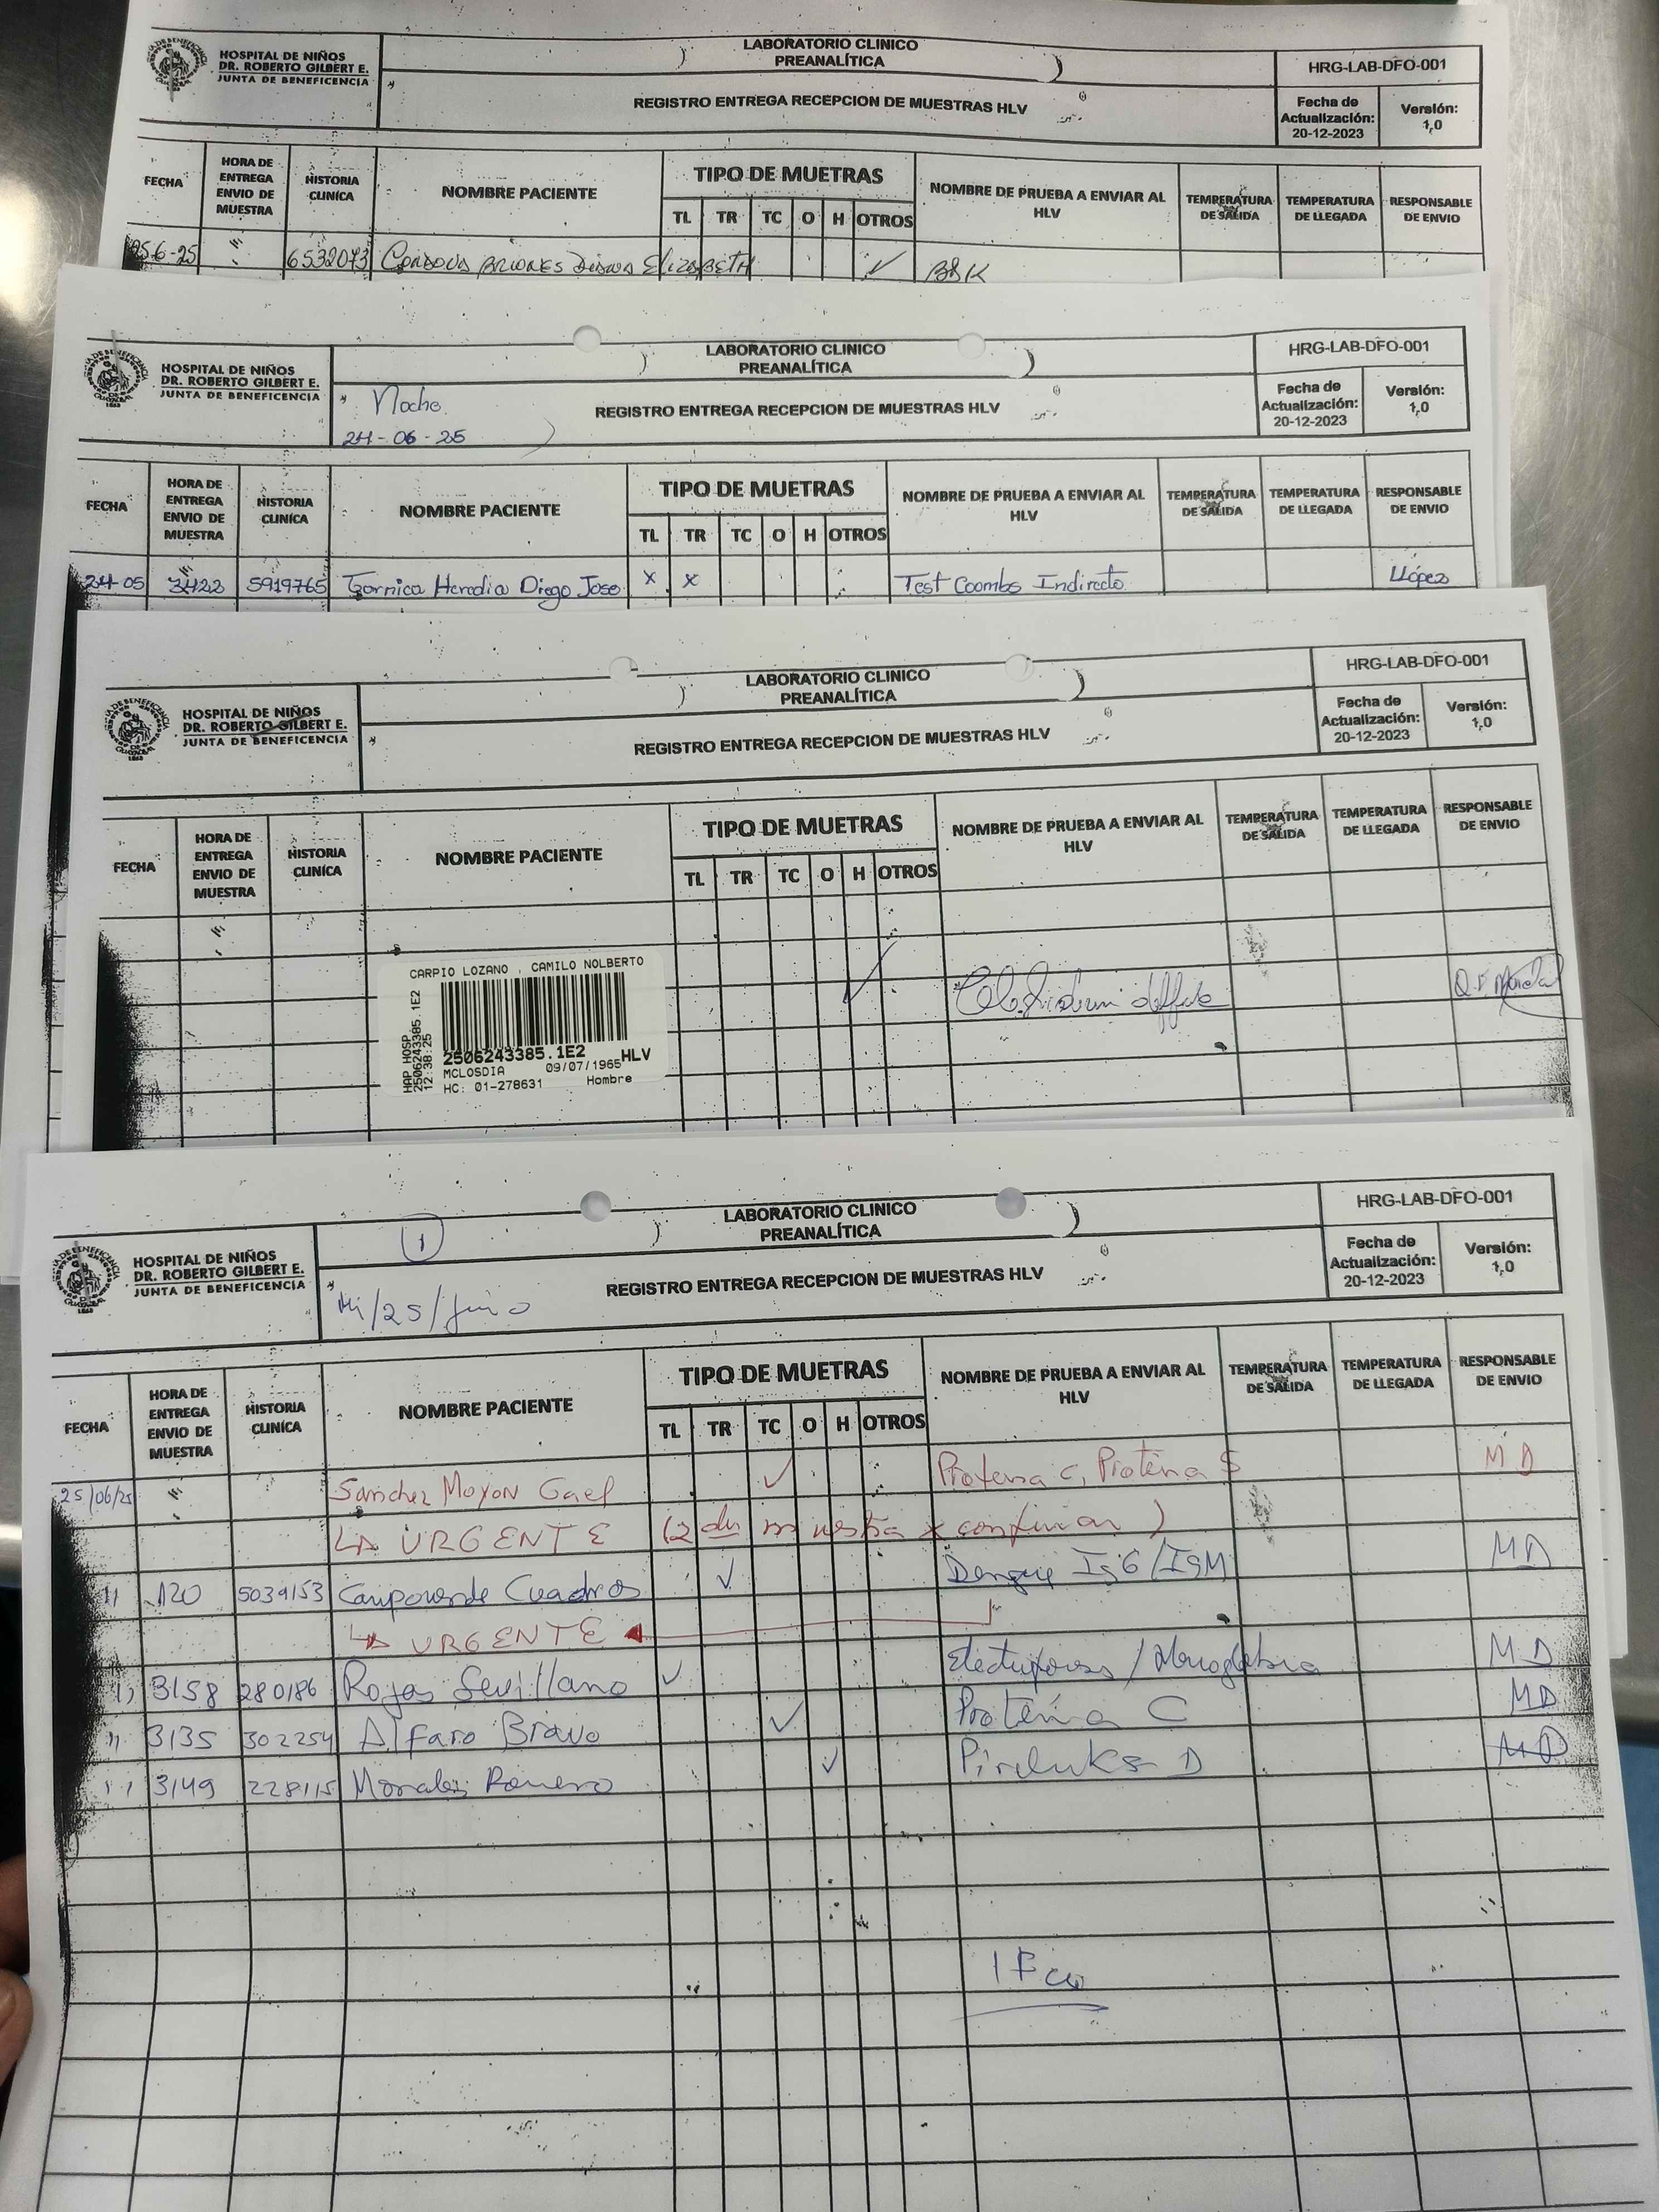 HOSPITAL DE NIÑOS
DR. ROBERTO GILBERT E.
JUNTA DE BENEFICENCIA
LABORATORIO CLINICO
PREANALÍTICA
REGISTRO ENTREGA RECEPCION DE MUESTRAS HLV
HRG-LAB-DFO-001
Fecha de Actualización: 20-12-2023
Versión: 1,0
FECHA
HORA DE ENTREGA ENVIO DE MUESTRA
HISTORIA CLINÍCA
NOMBRE PACIENTE
TIPO DE MUETRAS
TL TR TC O H OTROS
NOMBRE DE PRUEBA A ENVIAR AL HLV
TEMPERATURA DE SALIDA
TEMPERATURA DE LLEGADA
RESPONSABLE DE ENVIO
25-6-25 6532073 BRIONES ELIZABETH ✓
HOSPITAL DE NIÑOS
DR. ROBERTO GILBERT E.
JUNTA DE BENEFICENCIA
LABORATORIO CLINICO
PREANALÍTICA
Noche
24-06-25
REGISTRO ENTREGA RECEPCION DE MUESTRAS HLV
HRG-LAB-DFO-001
Fecha de Actualización: 20-12-2023
Versión: 1,0
FECHA
HORA DE ENTREGA ENVIO DE MUESTRA
HISTORIA CLINÍCA
NOMBRE PACIENTE
TIPO DE MUETRAS
TL TR TC O H OTROS
NOMBRE DE PRUEBA A ENVIAR AL HLV
TEMPERATURA DE SALIDA
TEMPERATURA DE LLEGADA
RESPONSABLE DE ENVIO
24-05 3422 5919765 Heredia Diego Jose x x Test Coombs Indirecto LLópez
HOSPITAL DE NIÑOS
DR. ROBERTO GILBERT E.
JUNTA DE BENEFICENCIA
LABORATORIO CLINICO
PREANALÍTICA
REGISTRO ENTREGA RECEPCION DE MUESTRAS HLV
HRG-LAB-DFO-001
Fecha de Actualización: 20-12-2023
Versión: 1,0
FECHA
HORA DE ENTREGA ENVIO DE MUESTRA
HISTORIA CLINÍCA
NOMBRE PACIENTE
TIPO DE MUETRAS
TL TR TC O H OTROS
NOMBRE DE PRUEBA A ENVIAR AL HLV
TEMPERATURA DE SALIDA
TEMPERATURA DE LLEGADA
RESPONSABLE DE ENVIO
CARPIO LOZANO , CAMILO NOLBERTO
HAP HOSP
2506243385.1E2
12:38:25
2506243385.1E2 HLV
MCLOSDIA 09/07/1965
HC: 01-278631 Hombre
✓
HOSPITAL DE NIÑOS
DR. ROBERTO GILBERT E.
JUNTA DE BENEFICENCIA
1
LABORATORIO CLINICO
PREANALÍTICA
Mi/25/junio
REGISTRO ENTREGA RECEPCION DE MUESTRAS HLV
HRG-LAB-DFO-001
Fecha de Actualización: 20-12-2023
Versión: 1,0
FECHA
HORA DE ENTREGA ENVIO DE MUESTRA
HISTORIA CLINÍCA
NOMBRE PACIENTE
TIPO DE MUETRAS
TL TR TC O H OTROS
NOMBRE DE PRUEBA A ENVIAR AL HLV
TEMPERATURA DE SALIDA
TEMPERATURA DE LLEGADA
RESPONSABLE DE ENVIO
25/06/25 Sanchez Moyon Gael ✓ Proteina C, Proteina S MD
URGENTE (2da muestra x confirmar)
11 120 5039153 Cuadros ✓ Dengue IgG/IgM MD
URGENTE
11 3158 280186 Rojas Sevillano ✓ MD
11 3135 302254 Alfaro Bravo ✓ Proteína C MD
11 3149 228115 Morales ✓ MD